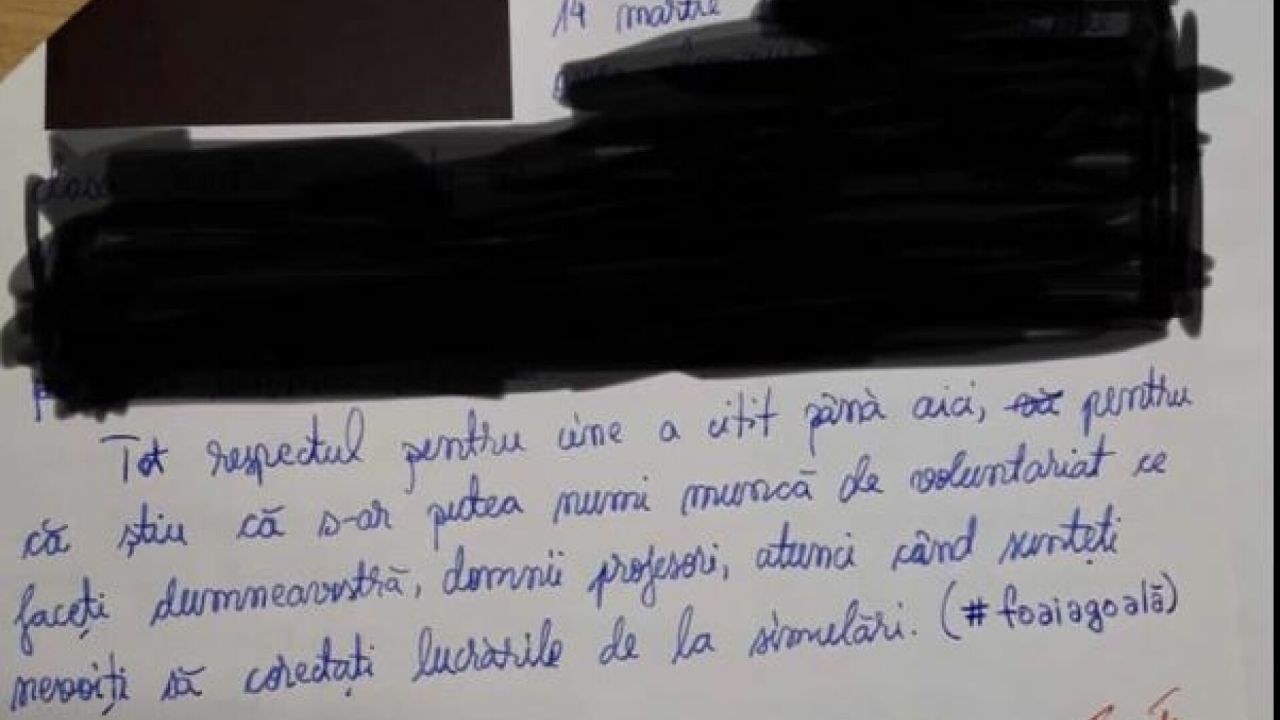 14 martie
clasa
Tot respectul pentru cine a citit până aici, pentru
că știu că s-ar putea numi muncă de voluntariat ce
faceți dumneavostră, domnii profesori, atunci când sunteți
nevoiți să corectați lucrările de la simulări. (#foaiagoală)